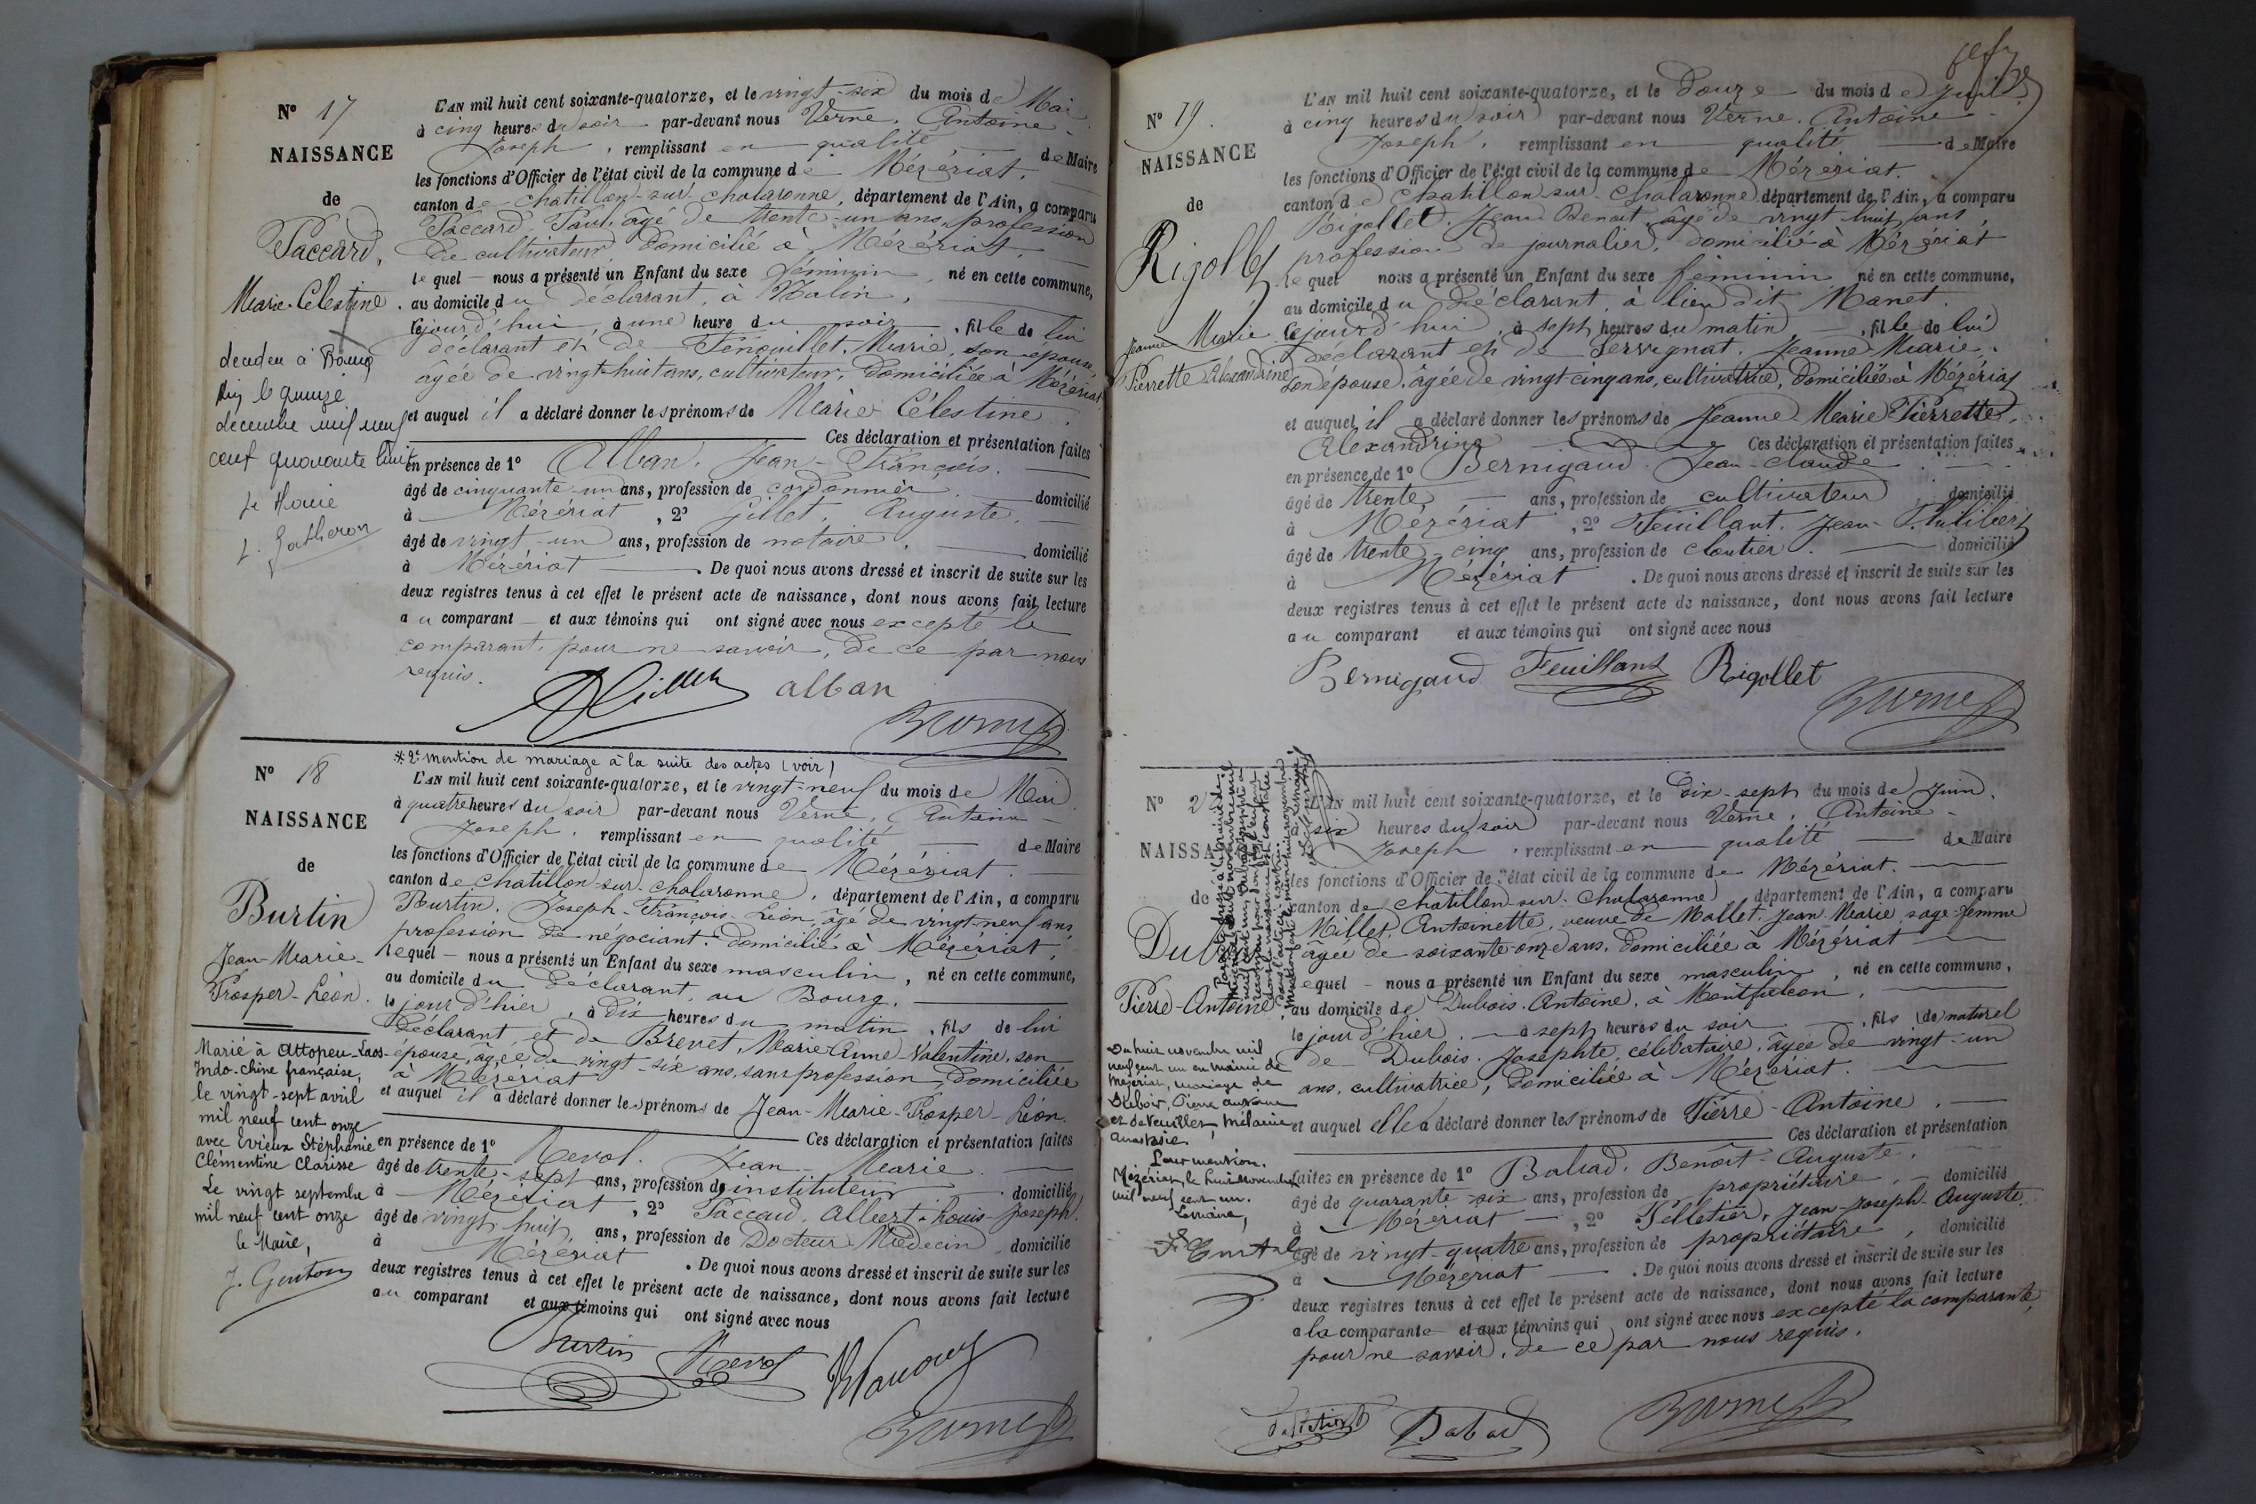 N° 17
NAISSANCE
de
Paccard,
Marie-Célestine
décédée à Bourg
Ain le quinze
décembre mil neuf
cent quarante huit
Le Maire
L'AN mil huit cent soixante-quatorze, et le vingt-six du mois de Mai
à cinq heures du soir par-devant nous Verne, Antoine-
Joseph, remplissant en qualité de Maire
les fonctions d'Officier de l'état civil de la commune de Mézériat,
canton de Chatillon-sur-chalaronne, département de l'Ain, a comparu
Paccard, Paul, âgé de trente-un ans, profession
de cultivateur, domicilié à Mézériat,
lequel nous a présenté un Enfant du sexe féminin, né en cette commune,
au domicile du déclarant, à
cejourd'hui, à une heure du soir, fille de lui
déclarant et de Fenouillet, Marie, son épouse,
âgée de vingt-huit ans, cultivateur, domiciliée à Mézériat.
et auquel il a déclaré donner les prénoms de Marie Célestine
Ces déclaration et présentation faites
en présence de 1° Alban, Jean-François.
âgé de cinquante-un ans, profession de cordonnier domicilié
à Mézériat, 2° Gillet, Auguste,
âgé de vingt-un ans, profession de notaire, domicilié
à Mézériat. De quoi nous avons dressé et inscrit de suite sur les
deux registres tenus à cet effet le présent acte de naissance, dont nous avons fait lecture
au comparant et aux témoins qui ont signé avec nous excepté le
comparant, pour ne savoir, de ce par nous
requis.
alban
N° 18
NAISSANCE
de
Burtin
Jean-Marie-
Prosper-Léon.
Marié à Attopeu-Laos-
Indo-Chine française,
le vingt-sept avril
mil neuf cent onze
avec Evieux Stéphanie
Clémentine Clarisse
Le vingt septembre
mil neuf cent onze
le Maire,
J. Genton
* 2e mention de mariage à la suite des actes (voir)
L'AN mil huit cent soixante-quatorze, et le vingt-neuf du mois de Mai
à quatre heures du soir par-devant nous Verne, Antoine-
Joseph, remplissant en qualité de Maire
les fonctions d'Officier de l'état civil de la commune de Mézériat.
canton de Chatillon-sur-chalaronne, département de l'Ain, a comparu
Burtin, Joseph-François-Léon, âgé de vingt-neuf ans,
profession de négociant, domicilié à Mézériat,
lequel nous a présenté un Enfant du sexe masculin, né en cette commune,
au domicile du déclarant, au Bourg,
le jour d'hier, à dix heures du matin, fils de lui
déclarant et de Brevet, Marie Anne-Valentine, son
épouse, âgée de vingt-six ans, sans profession, domiciliée
à Mézériat
et auquel il a déclaré donner les prénoms de Jean-Marie-Prosper-Léon.
Ces déclaration et présentation faites
en présence de 1° Revol, Jean-Marie.
âgé de trente-sept ans, profession de instituteur domicilié
à Mézériat, 2° Paccaud, Albert-Louis-Joseph,
âgé de vingt-huit ans, profession de Docteur-Médecin domicilié
à Mézériat. De quoi nous avons dressé et inscrit de suite sur les
deux registres tenus à cet effet le présent acte de naissance, dont nous avons fait lecture
au comparant et aux témoins qui ont signé avec nous
Burtin Revol
N° 19.
NAISSANCE
de
Rigollet
Jeanne Marie
Pierrette Alexandrine
L'AN mil huit cent soixante-quatorze, et le douze du mois de Juin
à cinq heures du soir par-devant nous Verne, Antoine-
Joseph, remplissant en qualité de Maire
les fonctions d'Officier de l'état civil de la commune de Mézériat.
canton de Chatillon sur Chalaronne département de l'Ain, a comparu
Rigollet, Jean Benoit, âgé de vingt-huit ans,
profession de journalier, domicilié à Mézériat
lequel nous a présenté un Enfant du sexe féminin né en cette commune,
au domicile du déclarant, à lieu dit Manet.
cejourd'hui, à sept heures du matin, fille de lui
déclarant et de Servignat, Jeanne Marie,
son épouse, âgée de vingt cinq ans, cultivatrice, domiciliée à Mézériat
et auquel il a déclaré donner les prénoms de Jeanne-Marie Pierrette,
Alexandrine Ces déclaration et présentation faites
en présence de 1° Bernigaud, Jean-Claude
âgé de trente ans, profession de cultivateur, domicilié
à Mézériat, 2° Feuillant, Jean-Philibert
âgé de trente-cinq ans, profession de cloutier. domicilié
à Mézériat. De quoi nous avons dressé et inscrit de suite sur les
deux registres tenus à cet effet le présent acte de naissance, dont nous avons fait lecture
au comparant et aux témoins qui ont signé avec nous
Bernigaud Feuillant Rigollet
N° 2
NAISSA
de
Dub
Pierre-Antoine
Du huit novembre mil
neuf cent un en mairie de
Mézériat, mariage de
Dubois, Pierre Antoine
et Mélanie
Anastasie.
Pour mention.
Mézériat, le huit novembre
mil neuf cent un.
Le maire,
L'AN mil huit cent soixante-quatorze, et le dix-sept du mois de Juin
six heures du soir par-devant nous Verne, Antoine-
Joseph, remplissant en qualité de Maire
les fonctions d'Officier de l'état civil de la commune de Mézériat.
canton de Chatillon-sur-Chalaronne département de l'Ain, a comparu
Millet, Antoinette, veuve de Mallet, Jean Marie, sage-femme
âgée de soixante-onze ans, domiciliée à Mézériat
lequel nous a présenté un Enfant du sexe masculin, né en cette commune,
au domicile de Dubois, Antoine, à Montfalcon,
le jour d'hier, à sept heures du soir, fils de naturel
de Dubois, Josephte, célibataire, âgée de vingt-un
ans, cultivatrice, domiciliée à Mézériat.
et auquel elle a déclaré donner les prénoms de Pierre-Antoine,
Ces déclaration et présentation
faites en présence de 1° Benoit-Auguste,
âgé de quarante-six ans, profession de propriétaire, domicilié
à Mézériat, 2° Pelletier, Jean-Joseph-Auguste,
âgé de vingt-quatre ans, profession de propriétaire, domicilié
à Mézériat. De quoi nous avons dressé et inscrit de suite sur les
deux registres tenus à cet effet le présent acte de naissance, dont nous avons fait lecture
a la comparante et aux témoins qui ont signé avec nous excepté la comparante,
pour ne savoir, de ce par nous requis.